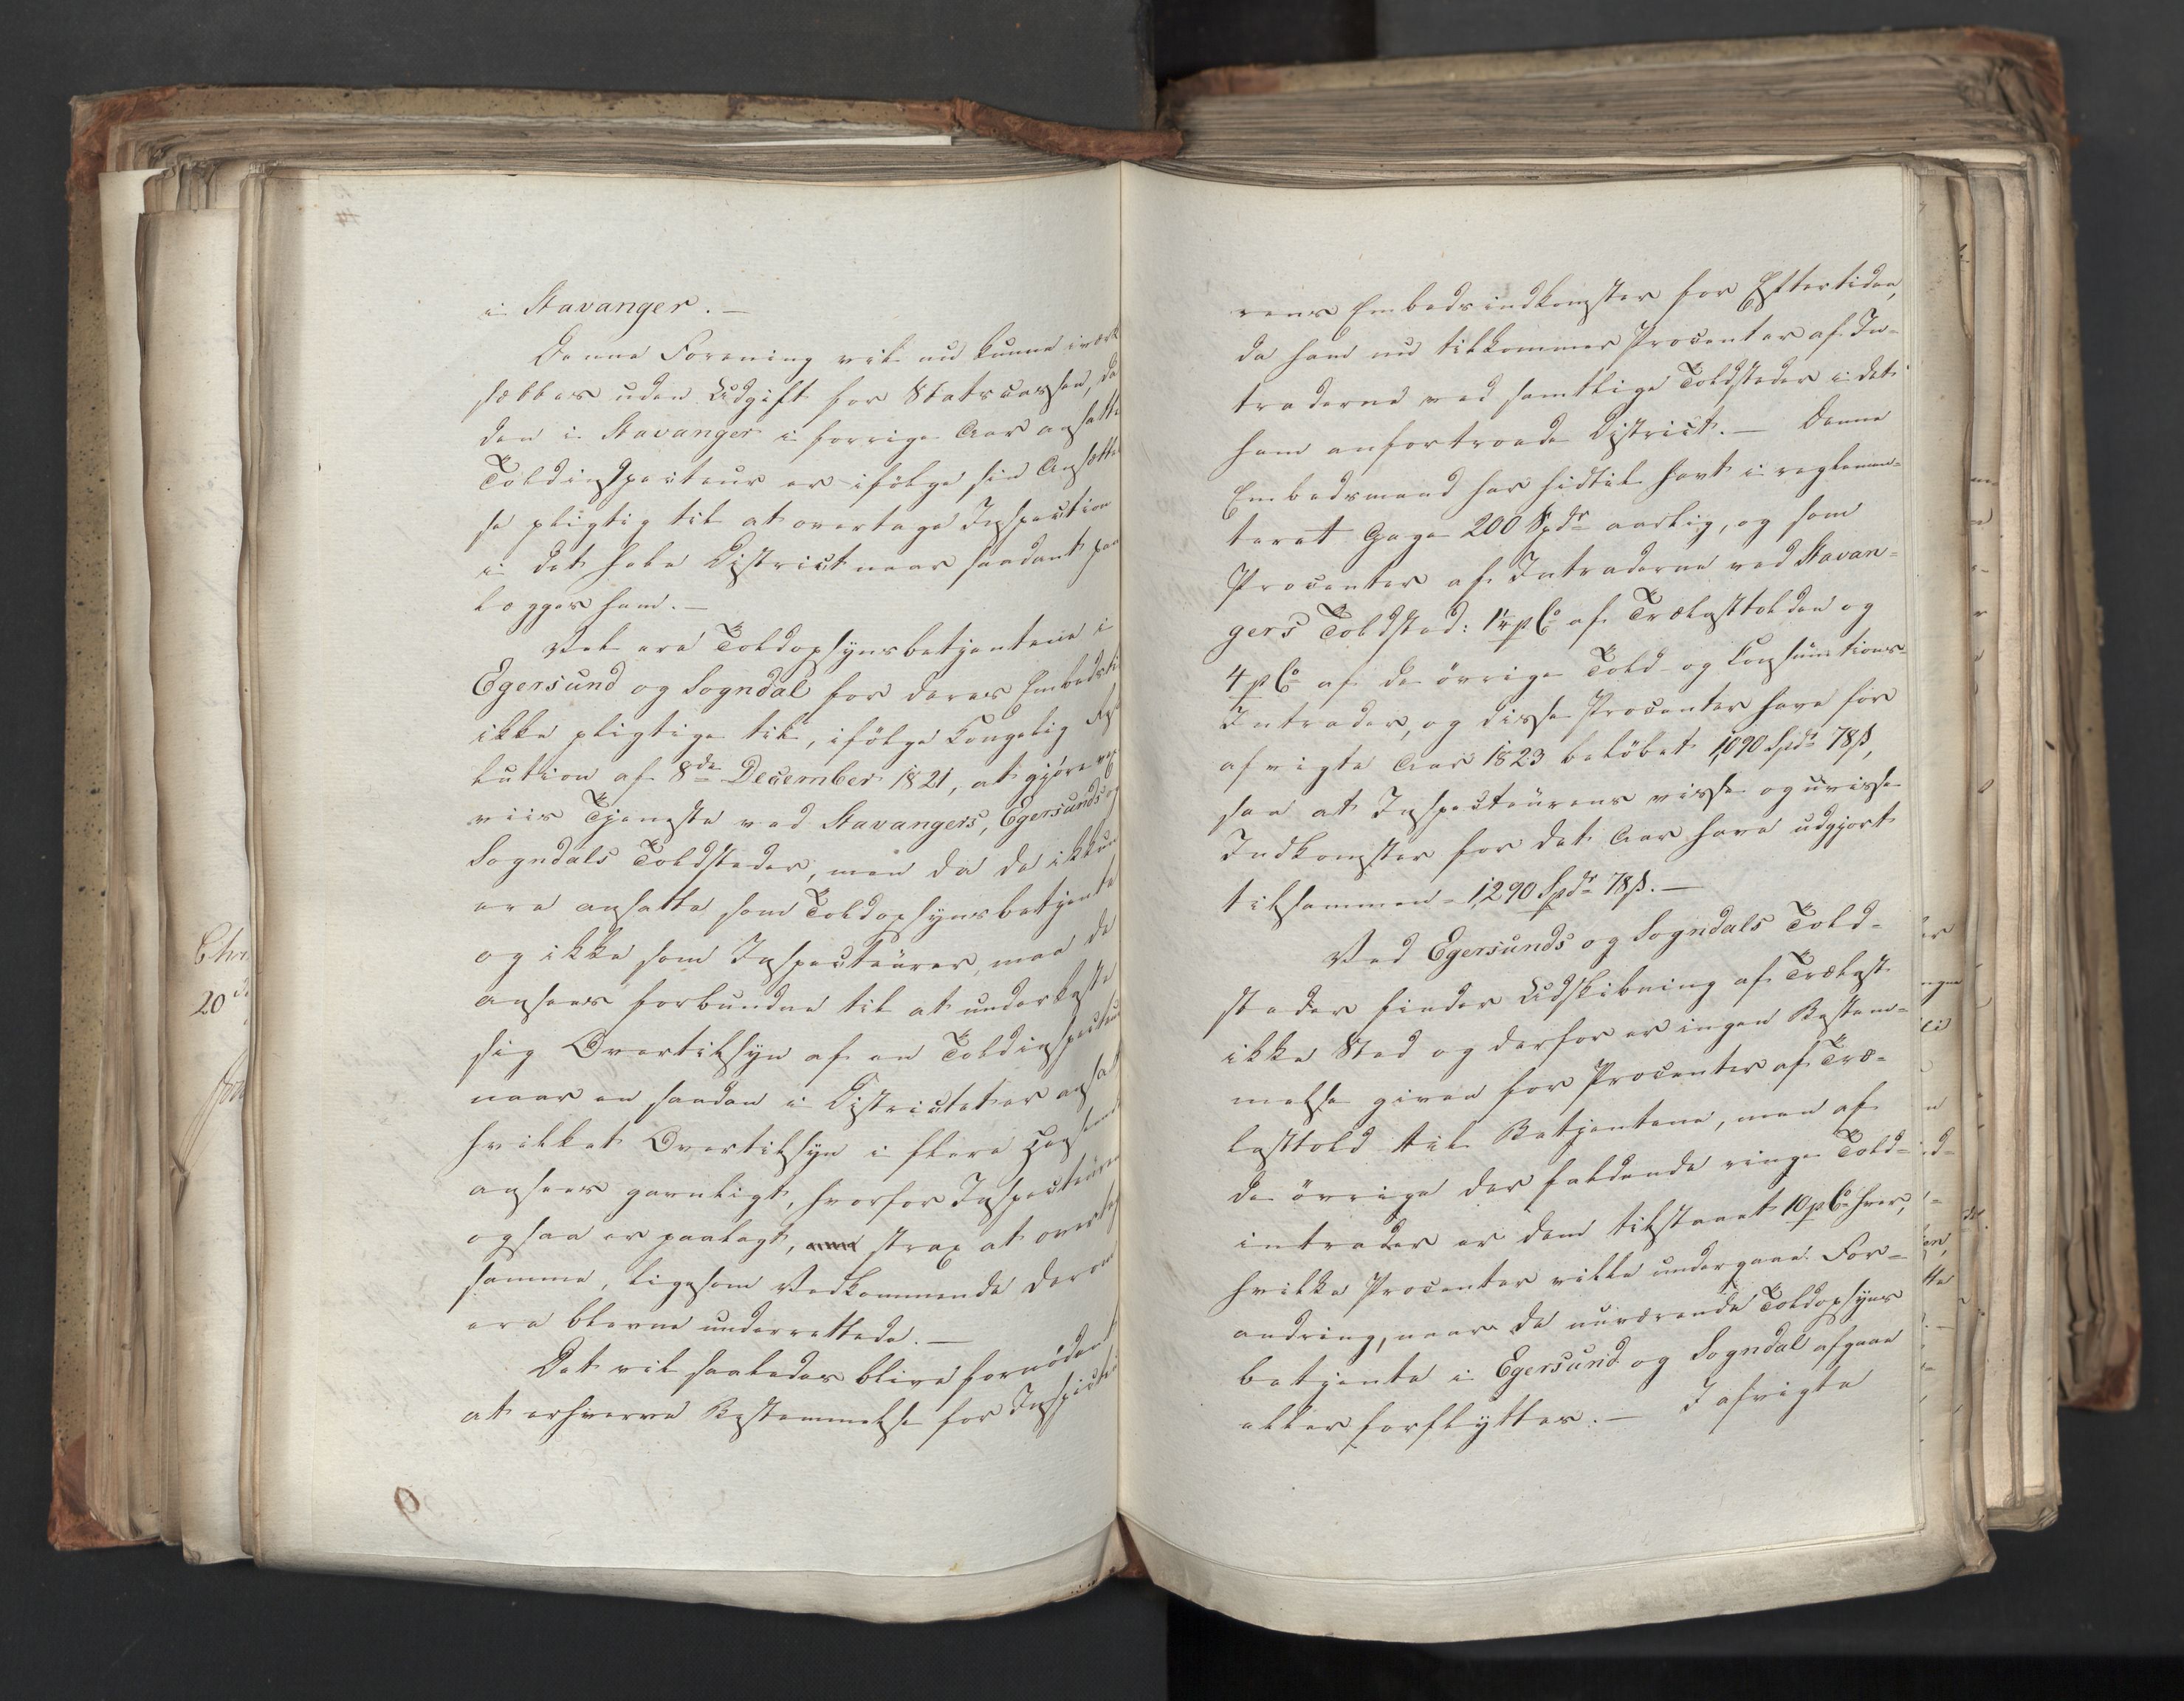 i Stavanger. —
Denne Forening vil nu kunne iværk
sættes uden Udgift for Statscassen, da
den i Stavanger i forrige Aar ansatte
Toldinspecteur er ifölge sin Ansættel
se pligtig til at overtage Inspection
i det hele District naar saadant paa
lægges ham. —
Vel ere Toldopsynsbetjentene i
Egersund og Sogndal for deres Embedsti
ikke pligtige til, ifölge Kongelig Reso
lution af 8de December 1821, at gjöre vex
viis Tjeneste ved Stavangers, Egersunds og
Sogndals Toldsteder, men da de ikkun
ere ansatte som Toldopsynsbetjente
og ikke som Inspecteurer, maa de
ansees forbundne til at underkaste
sig Overtilsyn af en Toldinspecteur
naar en saadan i Districtet er ansat
hvilket Overtilsyn i flere Henseend
ansees gavnligt, hvorfor Inspecteuren
ogsaa er paalagt, strax at overtag
samme, ligesom Vedkommende derom
ere blevne underrettede. —
Det vil saaledes blive fornödent
at erhverve Bestemmelse for Inspecteu
rens Embedsindkomster for Eftertiden,
da ham nu tilkommer Procenter af In-
traderne ved samtlige Toldsteder i det
ham anfortroede District. — Denne
Embedsmand har hidtil havt i reglemen-
teret Gage 200 Spdr aarlig, og som
Procenter af Intraderne ved Stavan-
gers Toldsted: 1¼ pCo af Trælasttolden og
4 pCo af de övrige Told- og Consumtions-
Intrader, og disse Procenter have for
afvigte Aar 1823 belöbet 1,090 Spdr 78 ß,
saa at Inspecteurens visse og uvisse
Indkomster for det Aar have udgjort
tilsammen - 1,290 Spdr 78 ß. —
Ved Egersunds og Sogndals Told-
steder finder Udskibning af Trælast
ikke Sted og derfor er ingen Bestem-
melse given for Procenter af Træ-
lasttold til Betjentene, men af
de övrige der faldende ringe Told-
intrader er dem tilstaaet 10 pCo hver,
hvilke Procenter ville undergaae For-
andring, naar de nuværende Toldopsyns
betjente i Egersund og Sogndal afgaae
eller forflyttes. — I afvigte